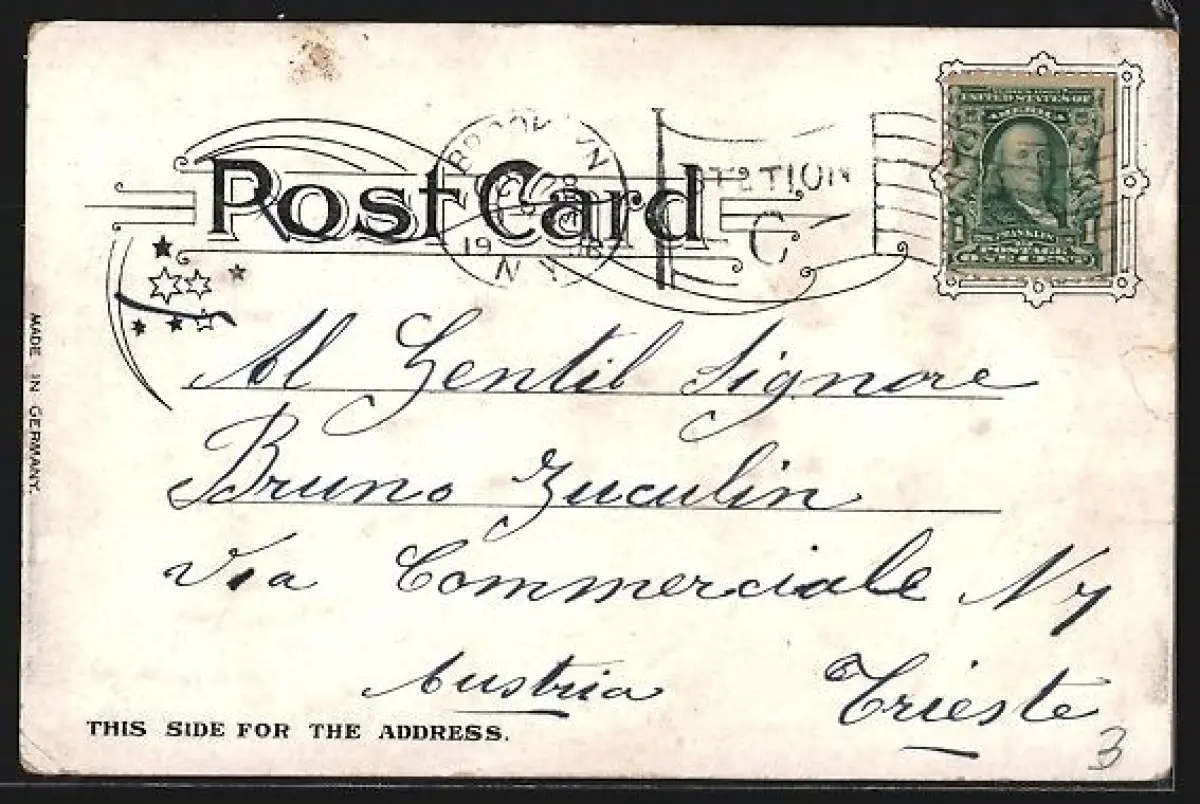 UNITED STATES OF
AMERICA
BROOKLYN
STATION
Post Card
C
19
N.Y.
FRANKLIN
1 POSTAGE 1
ONE CENT
Al Gentil Signore
Bruno Zuculin
Via Commerciale N 7
Austria Trieste
THIS SIDE FOR THE ADDRESS.
3
MADE IN GERMANY.